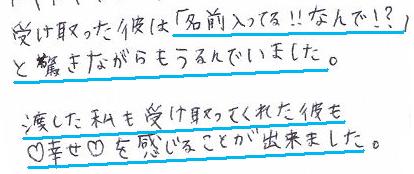 受け取った彼は「名前入ってる!!なんで!?」
と驚きながらもうるんでいました。
渡した私も受け取ってくれた彼も
♡幸せ♡を感じることが出来ました。